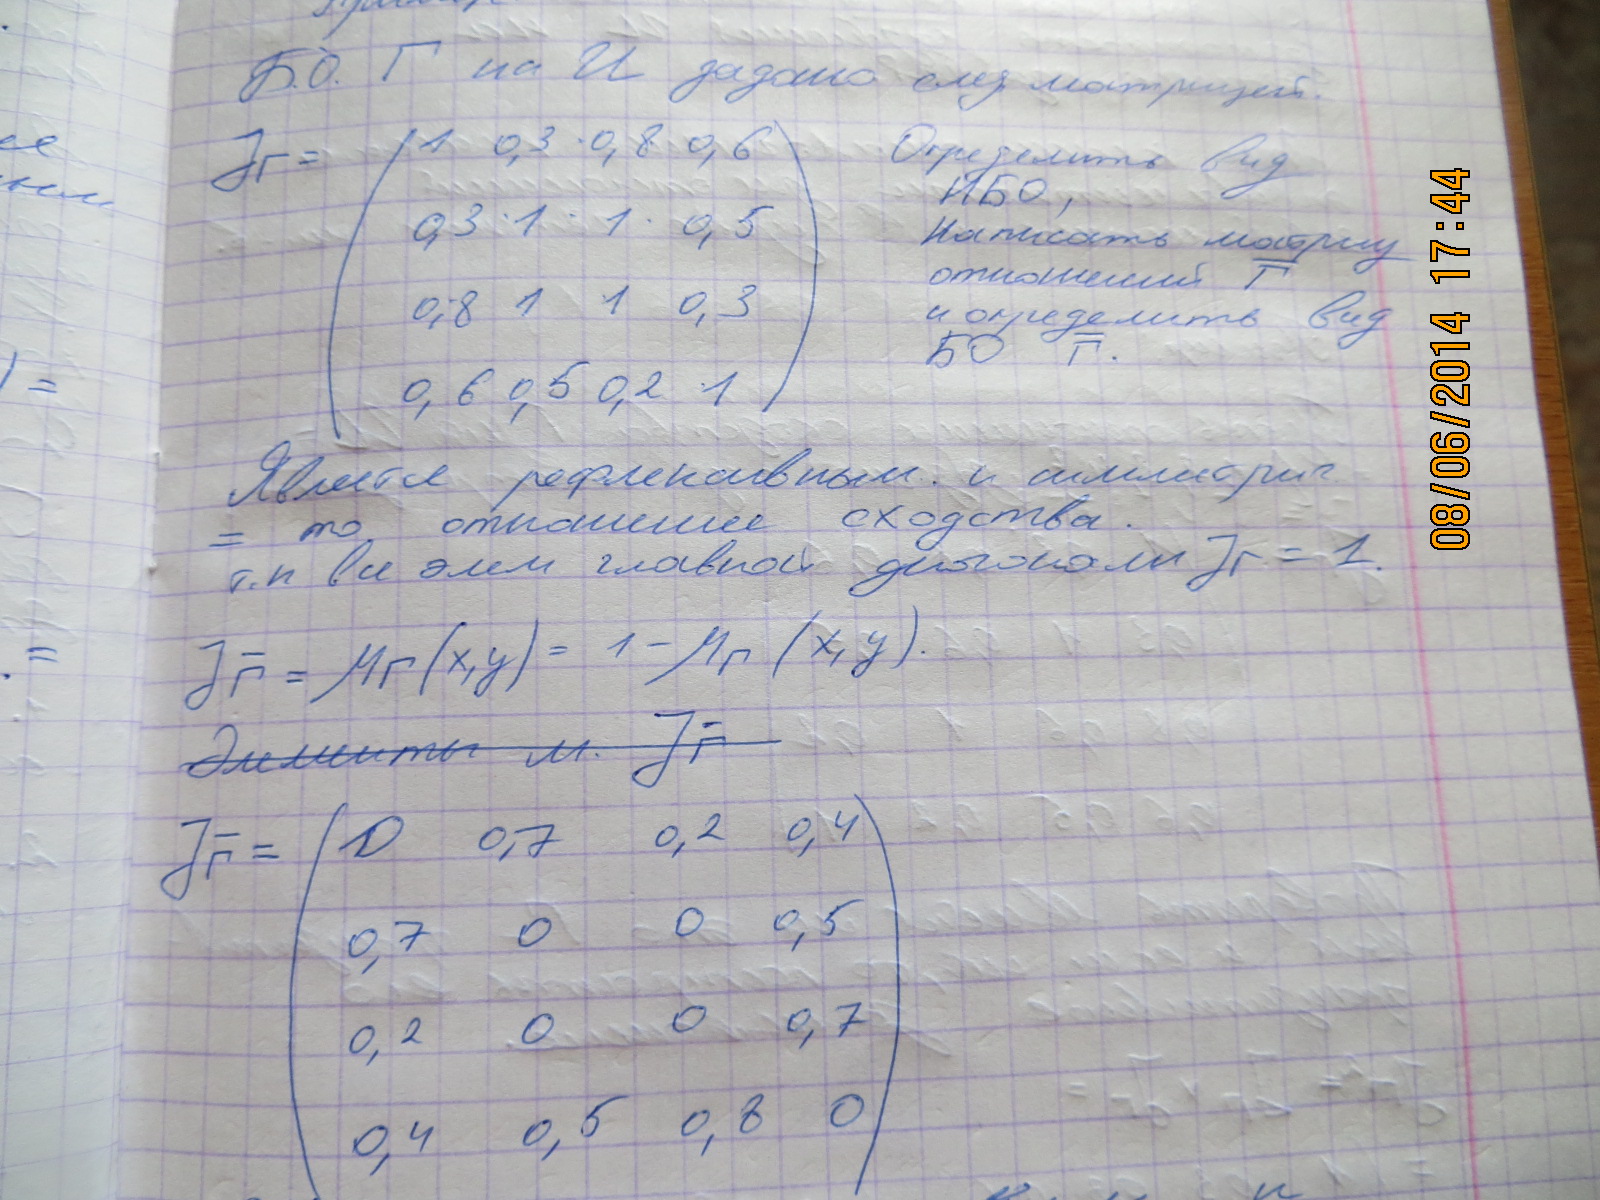 Пример
Б.О. Г на U задано след матрицей.
J_Г = ( 1 0,3 0,8 0,6
0,3 1 1 0,5
0,8 1 1 0,3
0,6 0,5 0,2 1 )
Определить вид
НБО,
Написать матрицу
отношений Г̅
и определить вид
БО Г̅.
Является рефлексивным и симметрич
= то отношение сходства.
т.к все элем главной диагонали J_Г = 1.
J_Г̅ = μ_Г(x,y) = 1 - μ_Г (x,y).
Элементы м. J_Г̅
J_Г̅ = ( 0 0,7 0,2 0,4
0,7 0 0 0,5
0,2 0 0 0,7
0,4 0,5 0,8 0 )
08/06/2014 17:44